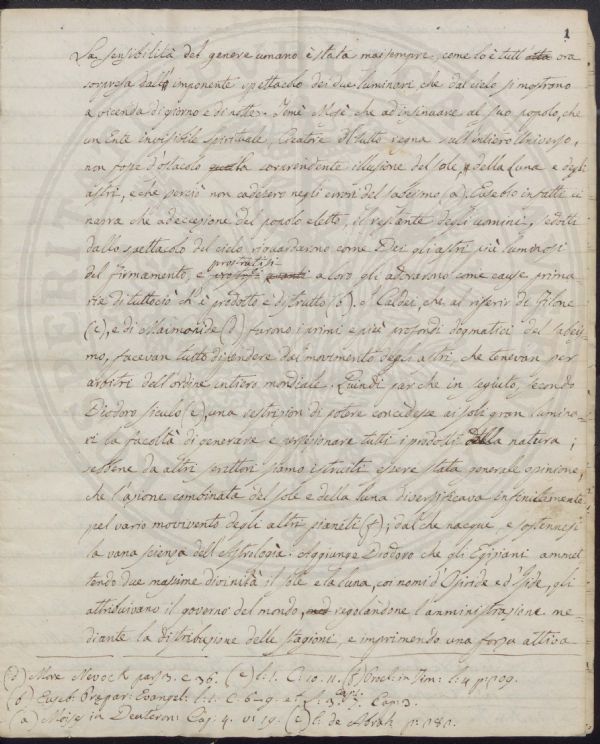 1
La sensibilità del genere umano è stata maisempre, come lo è tutt'otta ora
sorpresa dall'imponente spettacolo dei due luminari che dal cielo si mostrano
a vicenda di giorno e di notte. Temè Mosè che ad insinuare al suo popolo, che
un Ente invisibile spirituale, Creatore di tutto regna sull'intiero Universo,
non fosse d'ostacolo la sorprendente illusione del sole, della Luna e degli
astri, e che perciò non cadesero negli errori del sabeismo (a). Eusebio infatti ci
narra che ad eccezione del popolo eletto, il restante degli uomini, sedotti
dallo spettacolo del cielo riguardarono come Dei gli astri più luminosi
del firmamento, e prostratisi avanti a loro gli adorarono come cause prima
rie di tuttociò ch'è prodotto e distrutto (b). I Caldei, che al riferir di Filone
(c), e di Maimonide (d) furono i primi e più profondi dogmatici del sabeis
mo, facevan tutto dipendere dal movimento degli astri che tenevan per
arbitri dell'ordine intiero mondiale. Quindi par che in seguito, secondo
Diodoro siculo (e), una restrizion di potere concedesse ai soli gran lumina
ri la facoltà di generare e perfezionare tutti i prodotti della natura;
sebbene da altri scrittori siamo istruiti essere stata generale opinione,
che l'azione combinata del sole e della luna diversificava infinitamente
pel vario movivento degli altri pianeti (f); dal che nacque, e sostennesi
la vana scienza dell'Astrologia. Aggiunge Diodoro che gli Egiziani ammet
tendo due massime divinità il sole e la luna, coi nomi d'Osiride e d'Iside, gli
attribuivano il governo del mondo, regolandone l'amministrazione me
diante la distribuzione delle stagioni, e imprimendo una forza attiva
(d) More Nevoch pars 3. c. 36. (e) l. 1. C. 10. 11. (f) Procl. in Tim: l. 4 p. 209.
(b) Euseb: Prepar: Evangel: l. 1. C. 6-9. et l. 3. cap. 3. Cap: 3.
(a) Moise in Deuteron: Cap: 4. v. 19. (c) l. de Abrah p. 282.